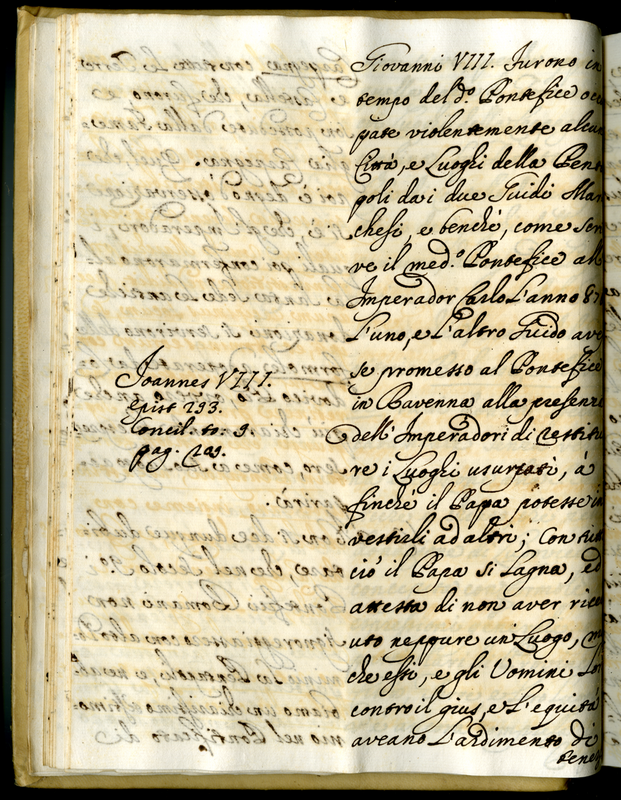 Giovanni VIII. Furono in
tempo del do. Pontefice occu
pate violentemente alcun
Città, e Luoghi della Pent
poli dai due Guidi Mar
chesi, e benchè, come scri
ve il med.o Pontefice all
Imperador Carlo l'anno 87
l'uno, e l'altro Guido aves
se promesso al Pontefice
in Ravenna alla presenz
dell'Imperadori di restitu
re i Luoghi usurpati, a
finchè il Papa potesse in
vestirli ad altri; Con tutt
ciò il Papa si lagna, ed
attesta di non aver rice
uto neppure un Luogo, m
che essi, e gli Uomini lor
contro il gius, e l'equità
aveano l'ardimento di
tener
Joannes VIII.
Epist 293.
Concil. to. 9.
pag. 209.